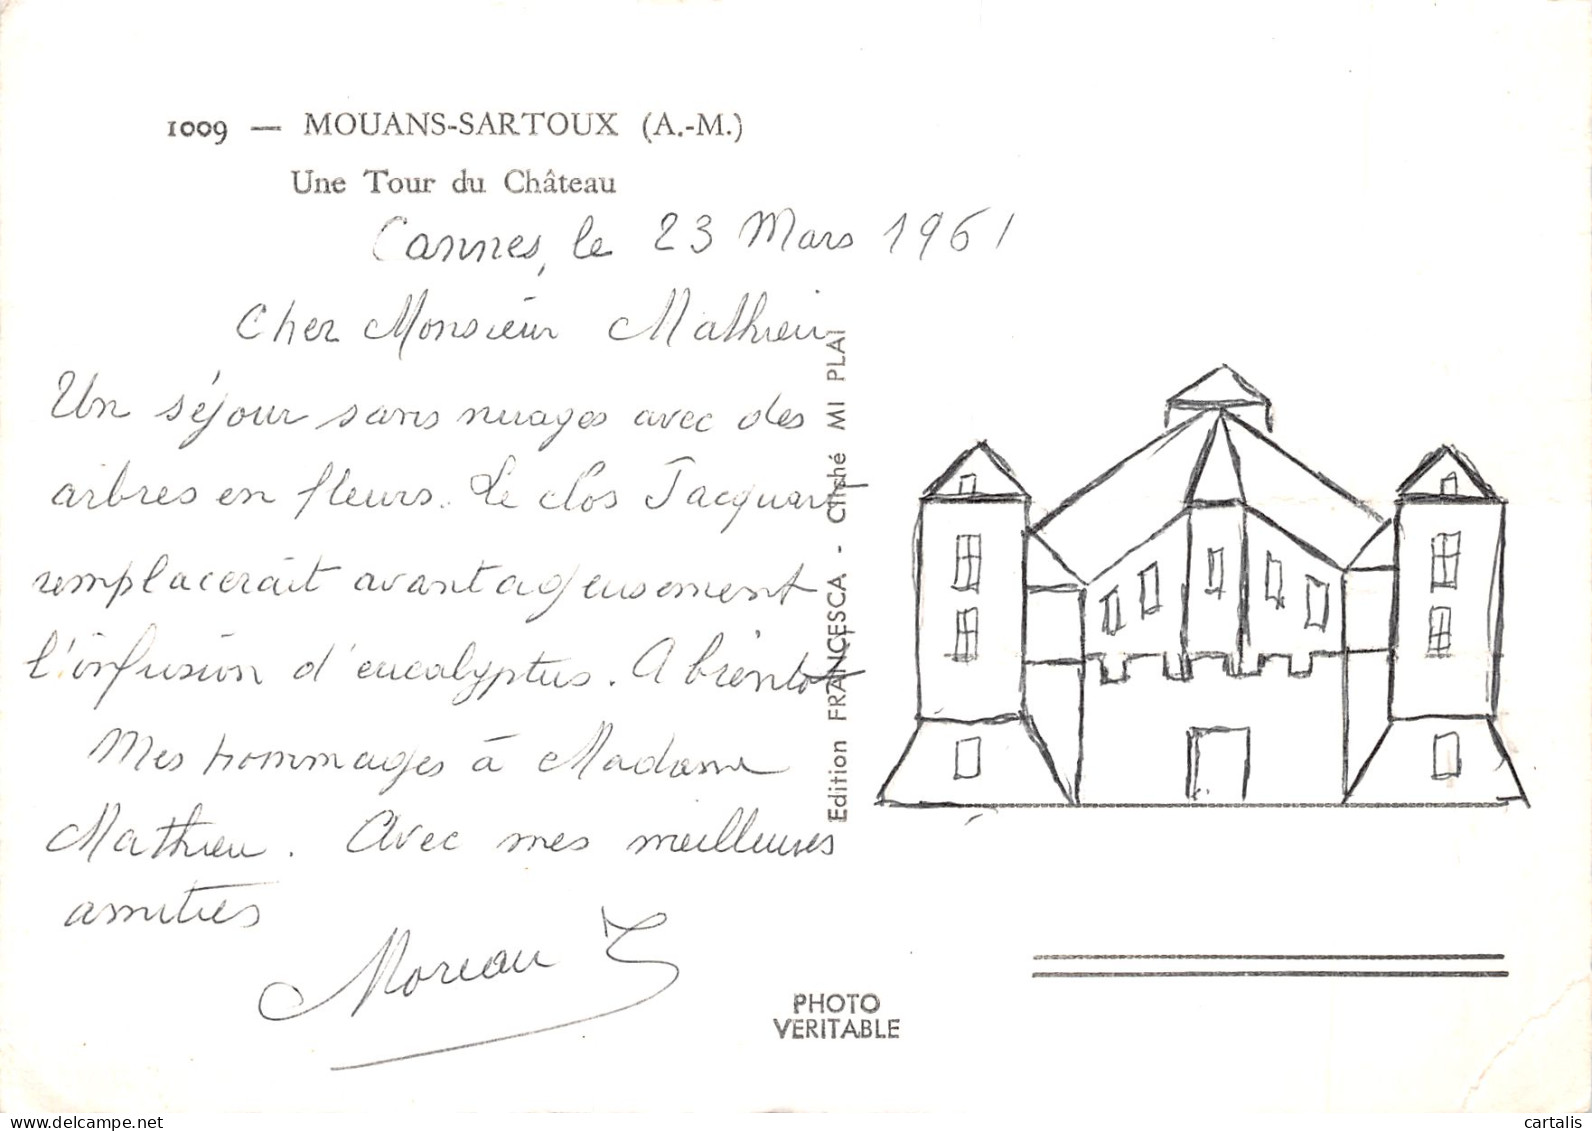 1009 — MOUANS-SARTOUX (A.-M.)
Une Tour du Château
Cannes, le 23 Mars 1961
Cher Monsieur Mathieu
Un séjour sans nuages avec des
arbres en fleurs. Le clos Jacquart
remplacerait avantageusement
l'infusion d'eucalyptus. A bientôt
Mes hommages à Madame
Mathieu. Avec mes meilleures
amitiés
Moreau
Edition FRANCESCA - Cliché MI PLAI
PHOTO
VERITABLE
cartalis